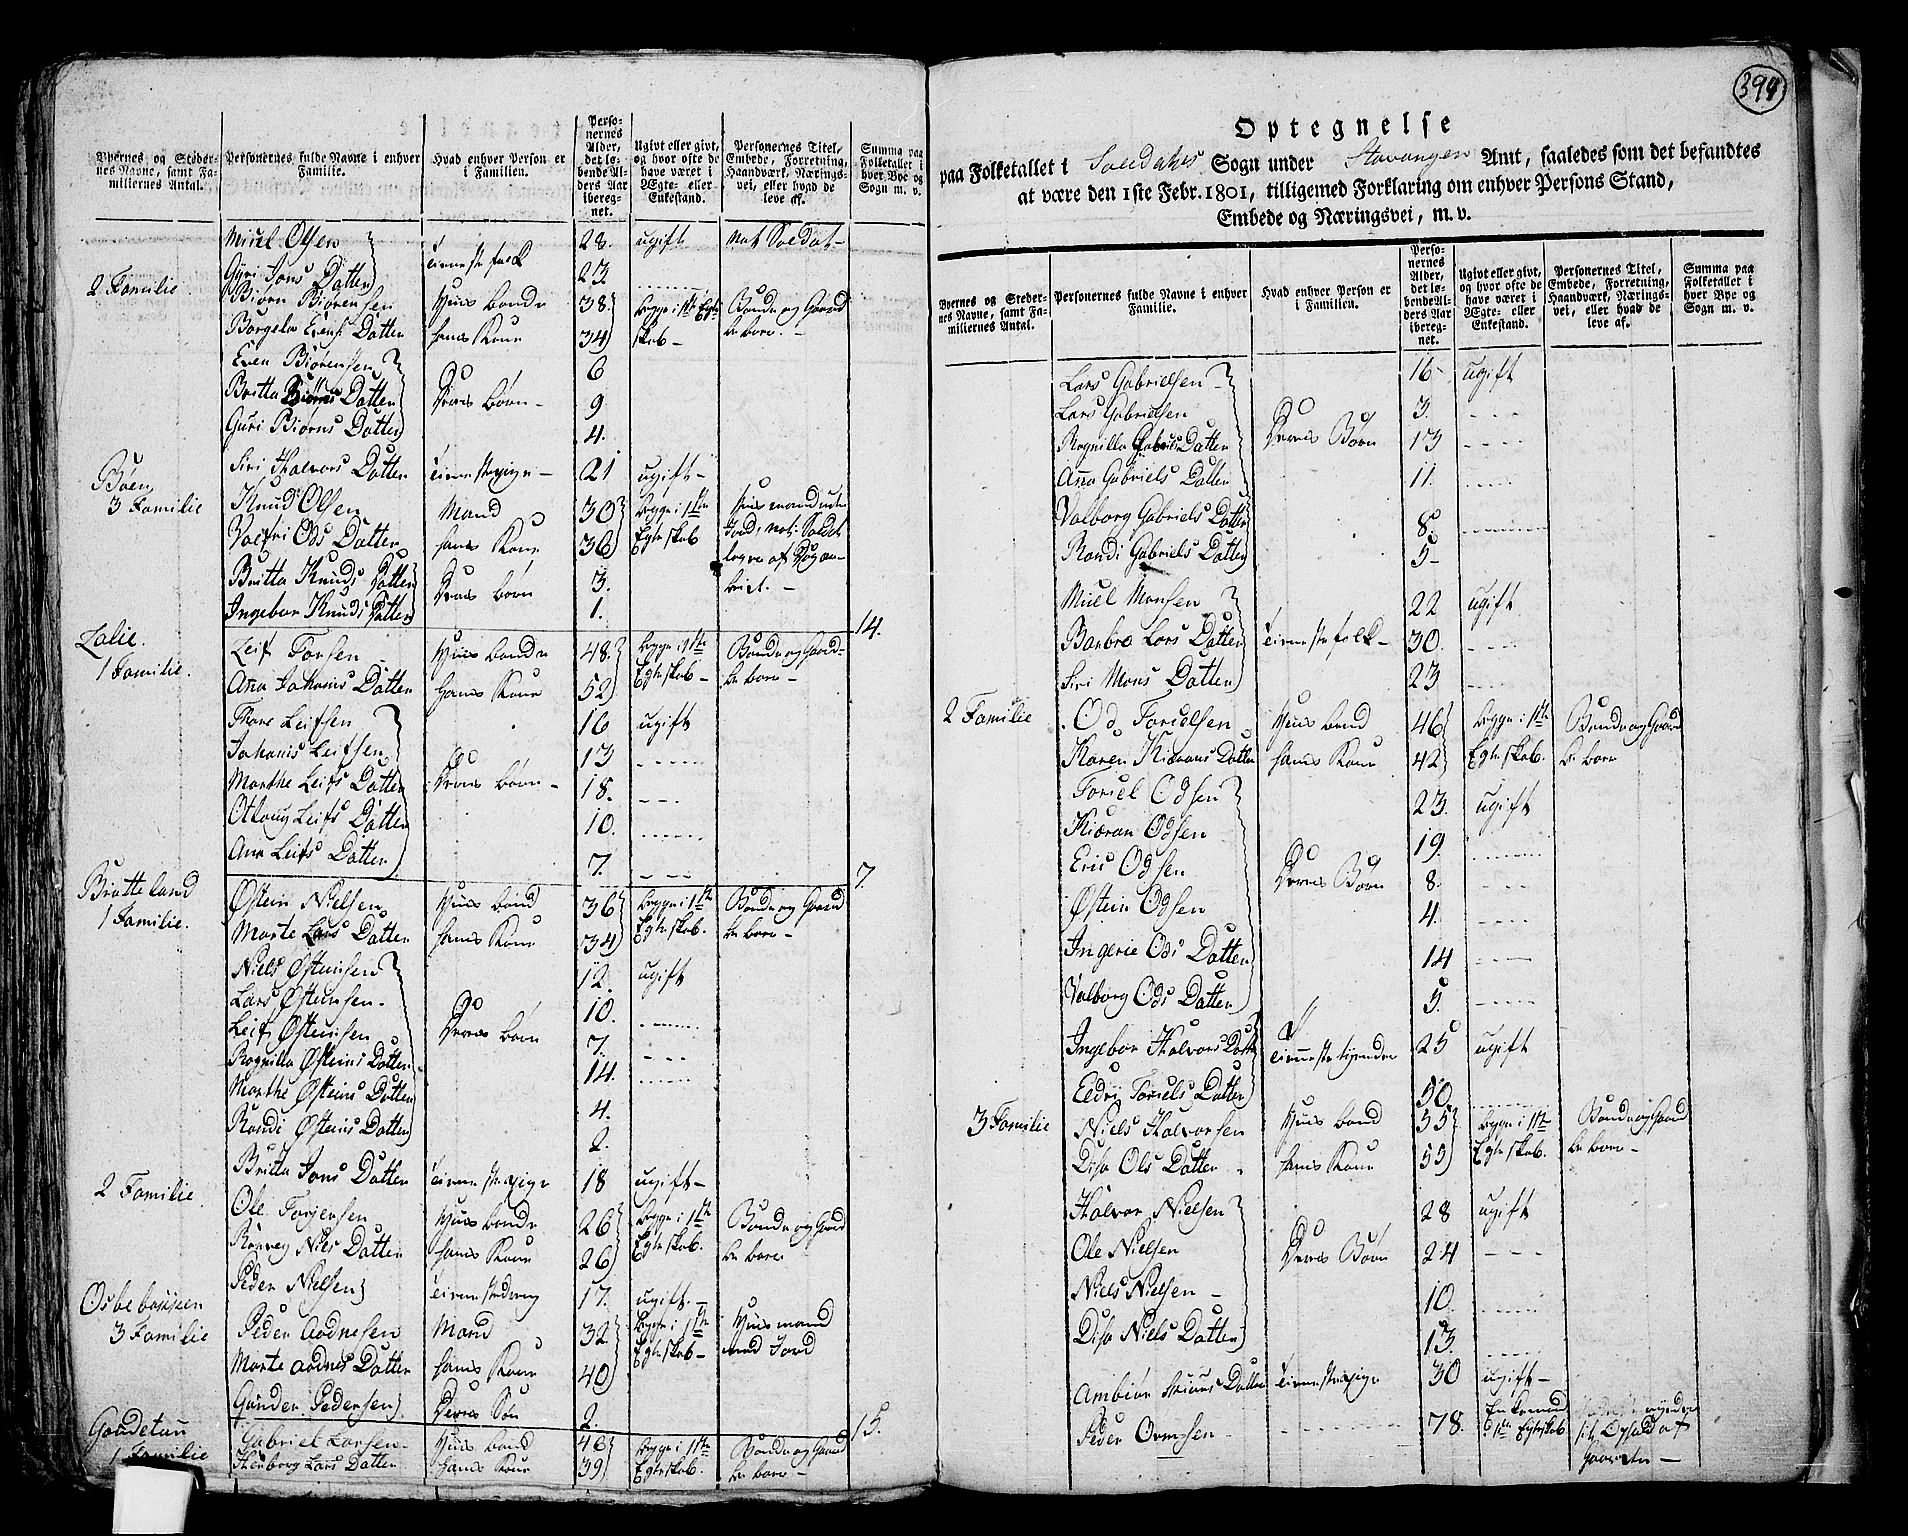 Byernes og Steder-
nes Navne, samt Fa-
miliernes Antal.
Personernes fulde Navne i enhver
Familie.
Hvad enhver Person er
i Familien.
Perso-
nernes
Alder,
det lø-
bende Al-
ders Aar
ibereg-
net.
Ugivt eller givt,
og hvor ofte de
have været i
Ægte- eller
Enkestand.
Personernes Titel,
Embede, Forretning,
Haandværk, Nærings-
vei, eller hvad de
leve af.
Summa paa
Folketallet i
hver Bye og
Sogn m. v.
Miuel Olsen 28. ugift Nat Soldat
Gyri Jons Datter tienestefolk 23
2 Familie Biørn Biørensen Huusbonde 38. begge i 1ste Egte Bonde og Gaard
Borgela Evens Datter hans Kone 34 skab beboer.
Even Biørensen 6
Britta Biørns Datter Deres børn 9
Guri Biørns Datter 4.
Siri Halvors Datter tienestepige 21 ugift
Bøen
3 Familie Knud Olsen Mand 30 begge i 1ste Huusmand uden
Valfri Ods Datter hans Kone 36 Egteskab Jord, nat: Soldat
Britta Knuds Datter Deres børn 3.
Ingebor Knuds Datter 1.
14.
Lalie.
1 Familie. Leif Torsen Huusbonde 48. begge i 1ste Bonde og Gaard
Ana Johanis Datter hans Kone 52 Egteskab beboer
Thore Leifsen 16 ugift
Johanis Leifsen 13
Marthe Leifs Datter Deres børn 18.
Otloug Leifs Datter 10.
Ana Leifs Datter 7.
7.
Bratteland
1 Familie. Østein Nielsen Huusbond 36 begge i 1ste Bonde og Gaard
Marte Lars Datter hans Kone 34 Egteskab. beboer
Niels Østensen 12. ugift
Lars Østensen 10.
Leif Østensen Deres børn 7.
Rognilla Østeins Datter 14.
Marthe Østeins Datter 4.
Randi Østeins Datter 2.
Britta Jons Datter tienestepige 18 ugift
2 Familie Ole Torjersen Huusbonde 26 begge i 1ste Bonde og Gaard
Rønnveg Niels Datter hans Kone 26 Egteskab. beboer
Peder Nielsen tienestedreng 17. ugift.
3 Familie Peder Aadnesen Mand 32 begge i 1ste Huusmand
Marte Aadnes Datter hans Kone 40 Egteskab med Jord
Gunder Pedersen Deres Søn 2.
15.
Goudetun
1 Familie Gabriel Larsen Huusbond 48 begge i 1ste Bonde og Gaard
Lars Datter hans Kone 39 Egteskab. beboer
394
Optegnelse
paa Folketallet i Souldahls Sogn under Stavanger Amt, saaledes som det befandtes
at være den 1ste Febr. 1801, tilligemed Forklaring om enhver Persons Stand,
Embede og Næringsvei, m. v.
Byernes og Steder-
nes Navne, samt Fa-
miliernes Antal.
Personernes fulde Navne i enhver
Familie.
Hvad enhver Person er
i Familien.
Perso-
nernes
Alder,
det lø-
bende Al-
ders Aar
ibereg-
net.
Ugivt eller givt,
og hvor ofte de
have været i
Ægte- eller
Enkestand.
Personernes Titel,
Embede, Forretning,
Haandværk, Nærings-
vei, eller hvad de
leve af.
Summa paa
Folketallet i
hver Bye og
Sogn m. v.
Lars Gabrielsen 16 ugift
Lars Gabrielsen 3.
Rognilla Gabriels Datter Deres Børn 13
Ana Gabriels Datter 11.
Valborg Gabriels Datter 8
Randi Gabriels Datter 5
Miuel Monsen 22 ugift
Barbro Lars Datter tienestefolk 30.
Siri Mons Datter 23
2 Familie Od Torielsen Huusbond 46 begge i 1ste Bonde og Gaard
Karen Kiærans Datter hans Kone 42 Egteskab. beboer
Toriel Odsen 23. ugift
Kiæran Odsen 19.
Eric Odsen Deres Børn 8.
Østein Odsen 4.
Ingerie Ods Datter 14
Valborg Ods Datter 5.
Ingebor Halvors Datter tienestetyende 25 ugift
Eldrij Toriels Datter 50
3 Familie Niels Halvorsen Huusbond 55 begge i 1ste Bonde og Gaard
Disa Ols Datter hans Kone 55 Egteskab. beboer
Halvor Nielsen 28 ugift
Ole Nielsen Deres Børn 24
Niels Nielsen 10.
Disa Niels Datter 13.
Ambiør Datter tienestepige 30 ugift
Peder Ormsen 78. Enkemand